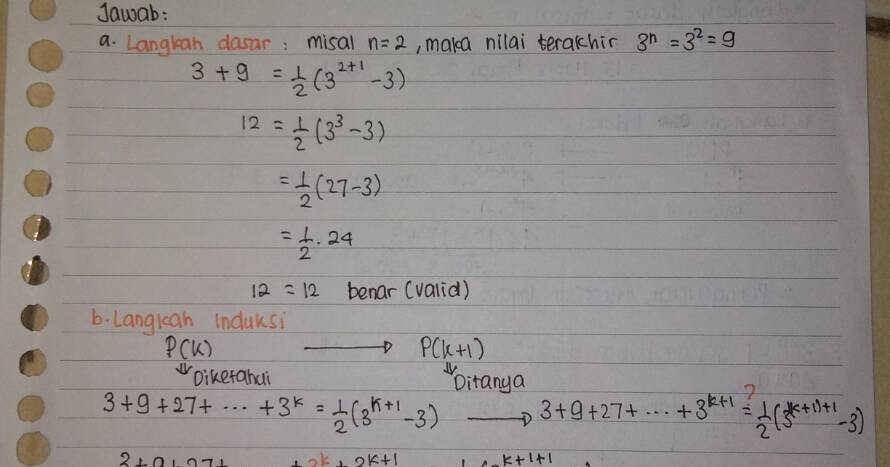 Jawab:
a. Langkah dasar : misal n=2, maka nilai terakhir 3ⁿ = 3² = 9
3 + 9 = 1/2 (3²⁺¹ - 3)
12 = 1/2 (3³ - 3)
= 1/2 (27 - 3)
= 1/2 . 24
12 = 12 benar (valid)
b. Langkah Induksi
P(k) → P(k+1)
⇓ Diketahui ⇓ Ditanya
3+9+27+ ... +3ᵏ = 1/2 (3ᵏ⁺¹ - 3) → 3+9+27+ ... +3ᵏ⁺¹ =? 1/2 (3⁽ᵏ⁺¹⁾⁺¹ - 3)
3+9+27+ 3ᵏ + 3ᵏ⁺¹ ᵏ⁺¹⁺¹